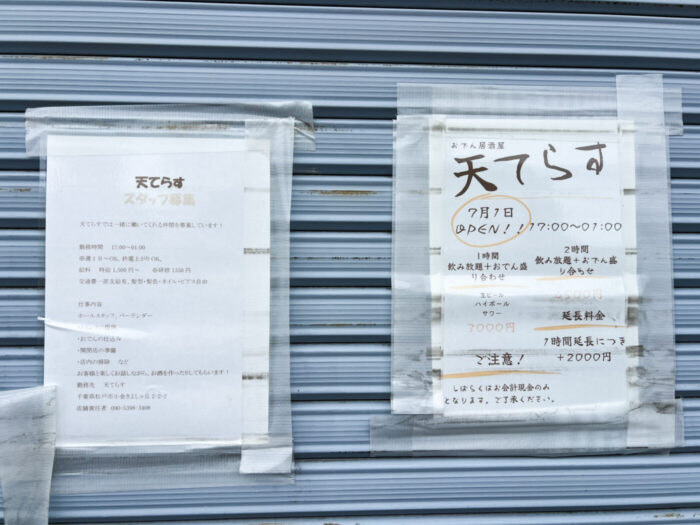 天てらす
スタッフ募集
天てらすでは一緒に働いてくれる仲間を募集しています!
勤務時間 17:00~01:00
※週1日~OK、終電上がりOK。
給料 時給1,500円~
交通費一部支給有、髪型・髪色・ネイル・ピアス自由
仕事内容
ホールスタッフ、バーテンダー
・おでんの仕込み
・開閉店の準備
・店内の掃除 など
お客様と楽しくお話しながら、お酒を作ったりしてもらいます!
勤務先 天てらす
千葉県松戸市小金きよしヶ丘2-2-2
店舗責任者
おでん居酒屋
天てらす
7月1日
OPEN!! 17:00~01:00
1時間
飲み放題+おでん盛
り合わせ
生ビール
ハイボール
サワー
3000円
2時間
飲み放題+おでん盛
り合わせ
4500円
延長料金
1時間延長につき
+2000円
ご注意!
しばらくはお会計現金のみ
となります。ご了承ください。